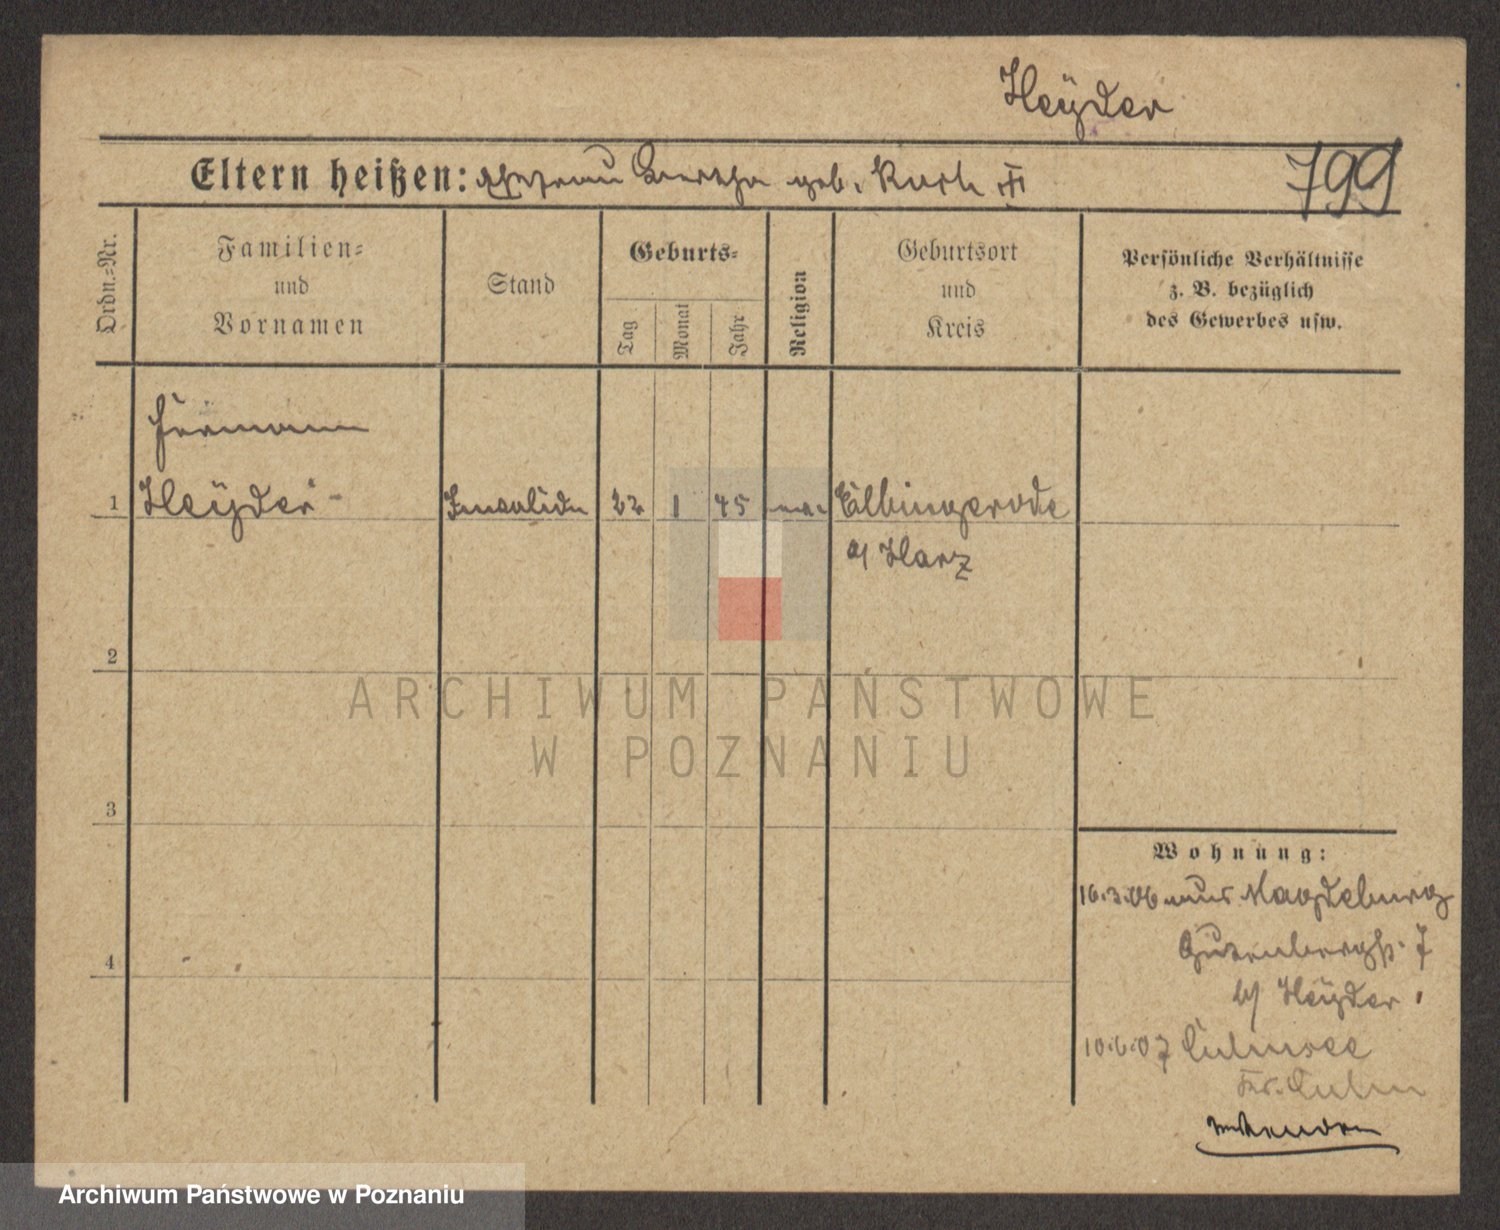 Heyder
Eltern heißen: Ehefrau Bertha geb. Kurth
799
Ordn.=Nr.
Familien=
und
Vornamen
Stand
Geburts=
Tag
Monat
Jahr
Religion
Geburtsort
und
Kreis
Persönliche Verhältnisse
z. B. bezüglich
des Gewerbes usw.
Hermann
1 Heyder Invalide 22 1 45 Elbingerode
a/ Harz
2
ARCHIWUM PAŃSTWOWE
W POZNANIU
3
Wohnung:
16.3.06 aus Magdeburg
4
Gutenbergstr. 7
b/ Heyder
10.6.07 Culmsee
Kr. Culm
Archiwum Państwowe w Poznaniu